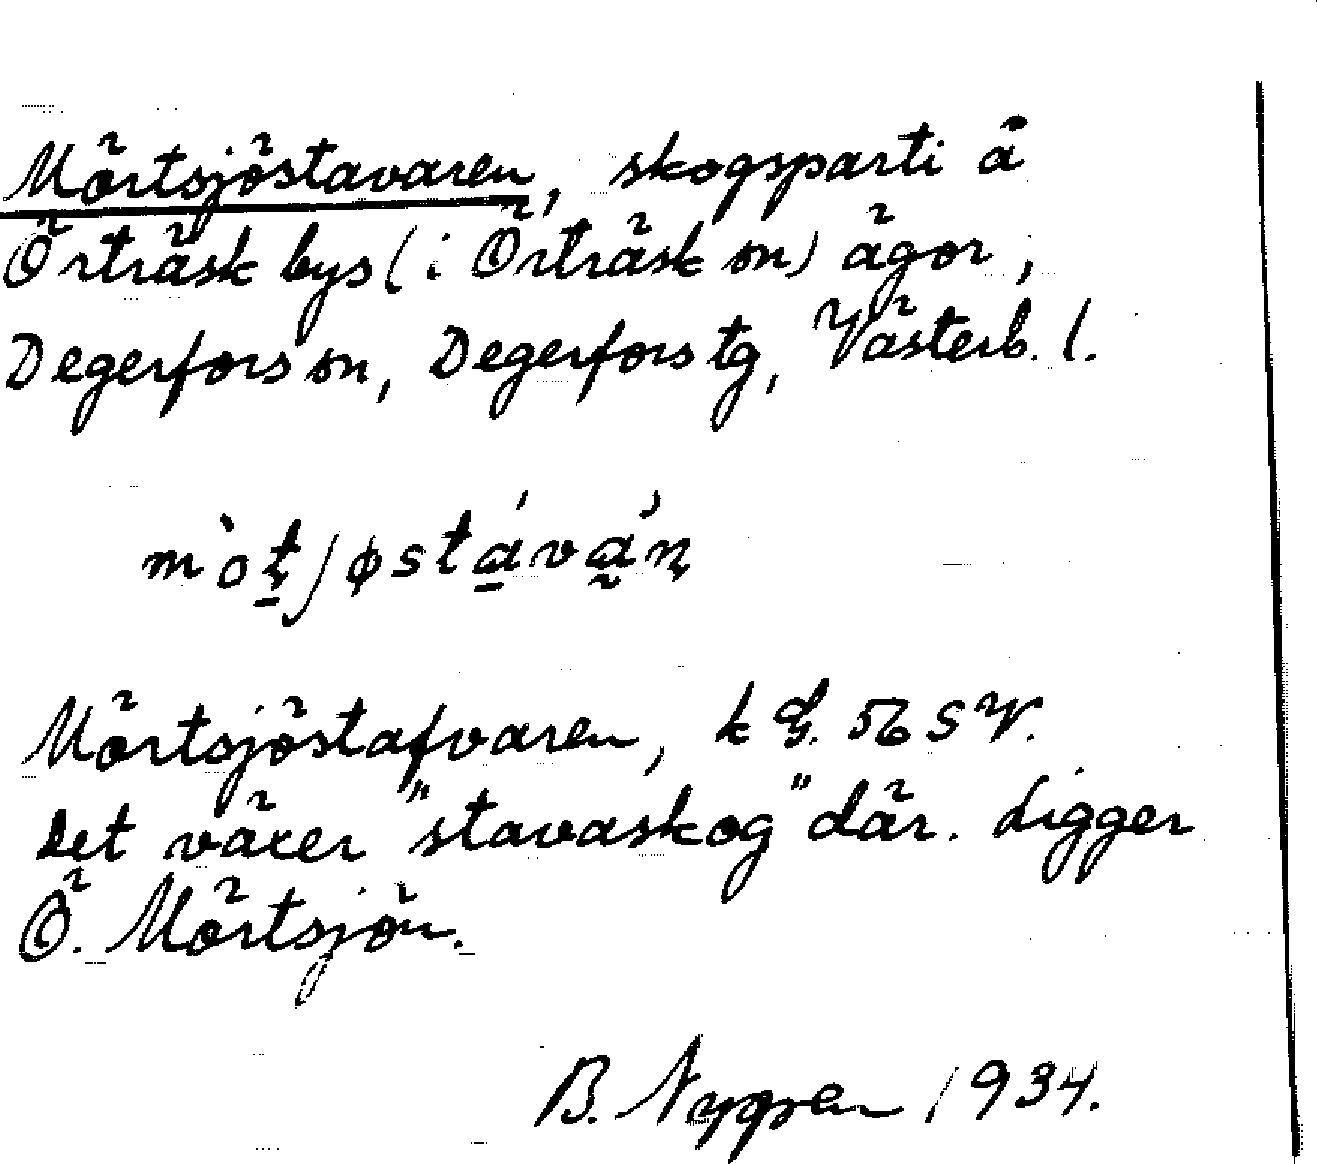 Mörtsjöstavaren, skogsparti å
Örträsk bys (i Örträsk sn) ägor,
Degerfors sn, Degerfors tg, Västerb. l.
Mörtsjöstafvaren, k G. 56 SV.
Det växer "stavaskog" där. Ligger
Ö. Mörtsjön.
B. Nygren 1934.